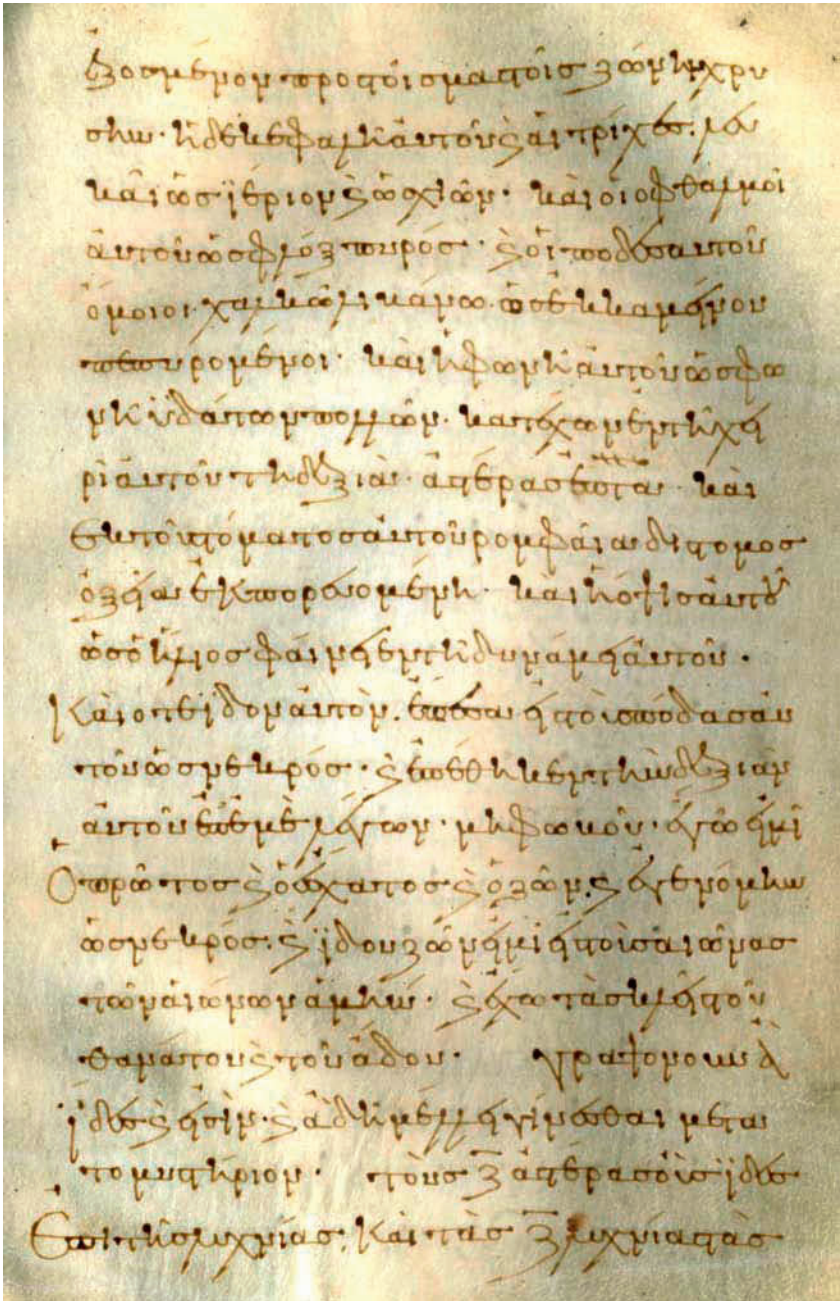 ἐζοσμένον προστοῖς μαστοῖς ζώνην χρυ
σην· ἡ δὲ κεφαλὴ ἀυτοῦ ϗ ἁι τρίχες· λευ
και ὡσ ϊέριον ϗ ὡσ χιὼν· καὶ οἱ οφθαλμοὶ
ἀυτοῦ ὡσ φλὸξ πυρός· ϗ οἱ πόδεσ αυτοῦ
ὅμοιοι χαλκωλιβάνω· ὡσ ἐκ καμήνου
πεπυρομένοι· καὶ ἡ φωνὴ ἀυτοῦ ὡσ φω
νὴ ὑδάτων πολλῶν· κατέχων ἐν τῆ χει
ρὶ ἀυτοῦ τη δεξιὰ· ἀστέρασ ἑπτὰ· καὶ
Ἐκ τοῦ στόματοσ ἀυτοῦ ρομφαία διστομοσ
ὀξεία ἐκπορευομένη· καὶ ἡ ὄψισ ἀυτοῦ
ὡσ ὁ ἥλιοσ φαίνει εν τῆ δυνάμει ἀυτοῦ·
Καὶ οτε ἶδον ἀυτὸν· ἔπεσα εἰσ τοὺσ πόδασ ἀυ
τοῦ ὡσ νεκρόσ· ϗ ἐπέθηκεν τὴν δεξιὰν
ἀυτοῦ ἐπεμὲ λέγων· μὴ φωβοῦ· ἐγώ εἰμι
Ὁ πρῶτοσ ϗ ὁ ἔσχατοσ ϗ ὁ ζῶν· ϗ ἐγενόμην
ὡσ νεκρόσ· ϗ ϊδοὺ ζῶν εἰμὶ εἰσ τοὺσ αἰῶνασ
τῶν αἰώνων ἀμήν· ϗ ἔχω τὰσ κλεῖσ τοῦ
θανάτου ϗ τοῦ ἅδου· γραψον ουν ἃ
ἶδεσ ϗ ἃ εἰσὶν· ϗ ἃ δεῖ μέλλει γίνεσθαι μετα
το μυστήριον· τοὺσ ζ ἀστέρασ οὓσ ἶδεσ
Ἐπὶ τῆσ λυχνίασ· Καὶ τὰσ ζ λυχνίασ τὰσ